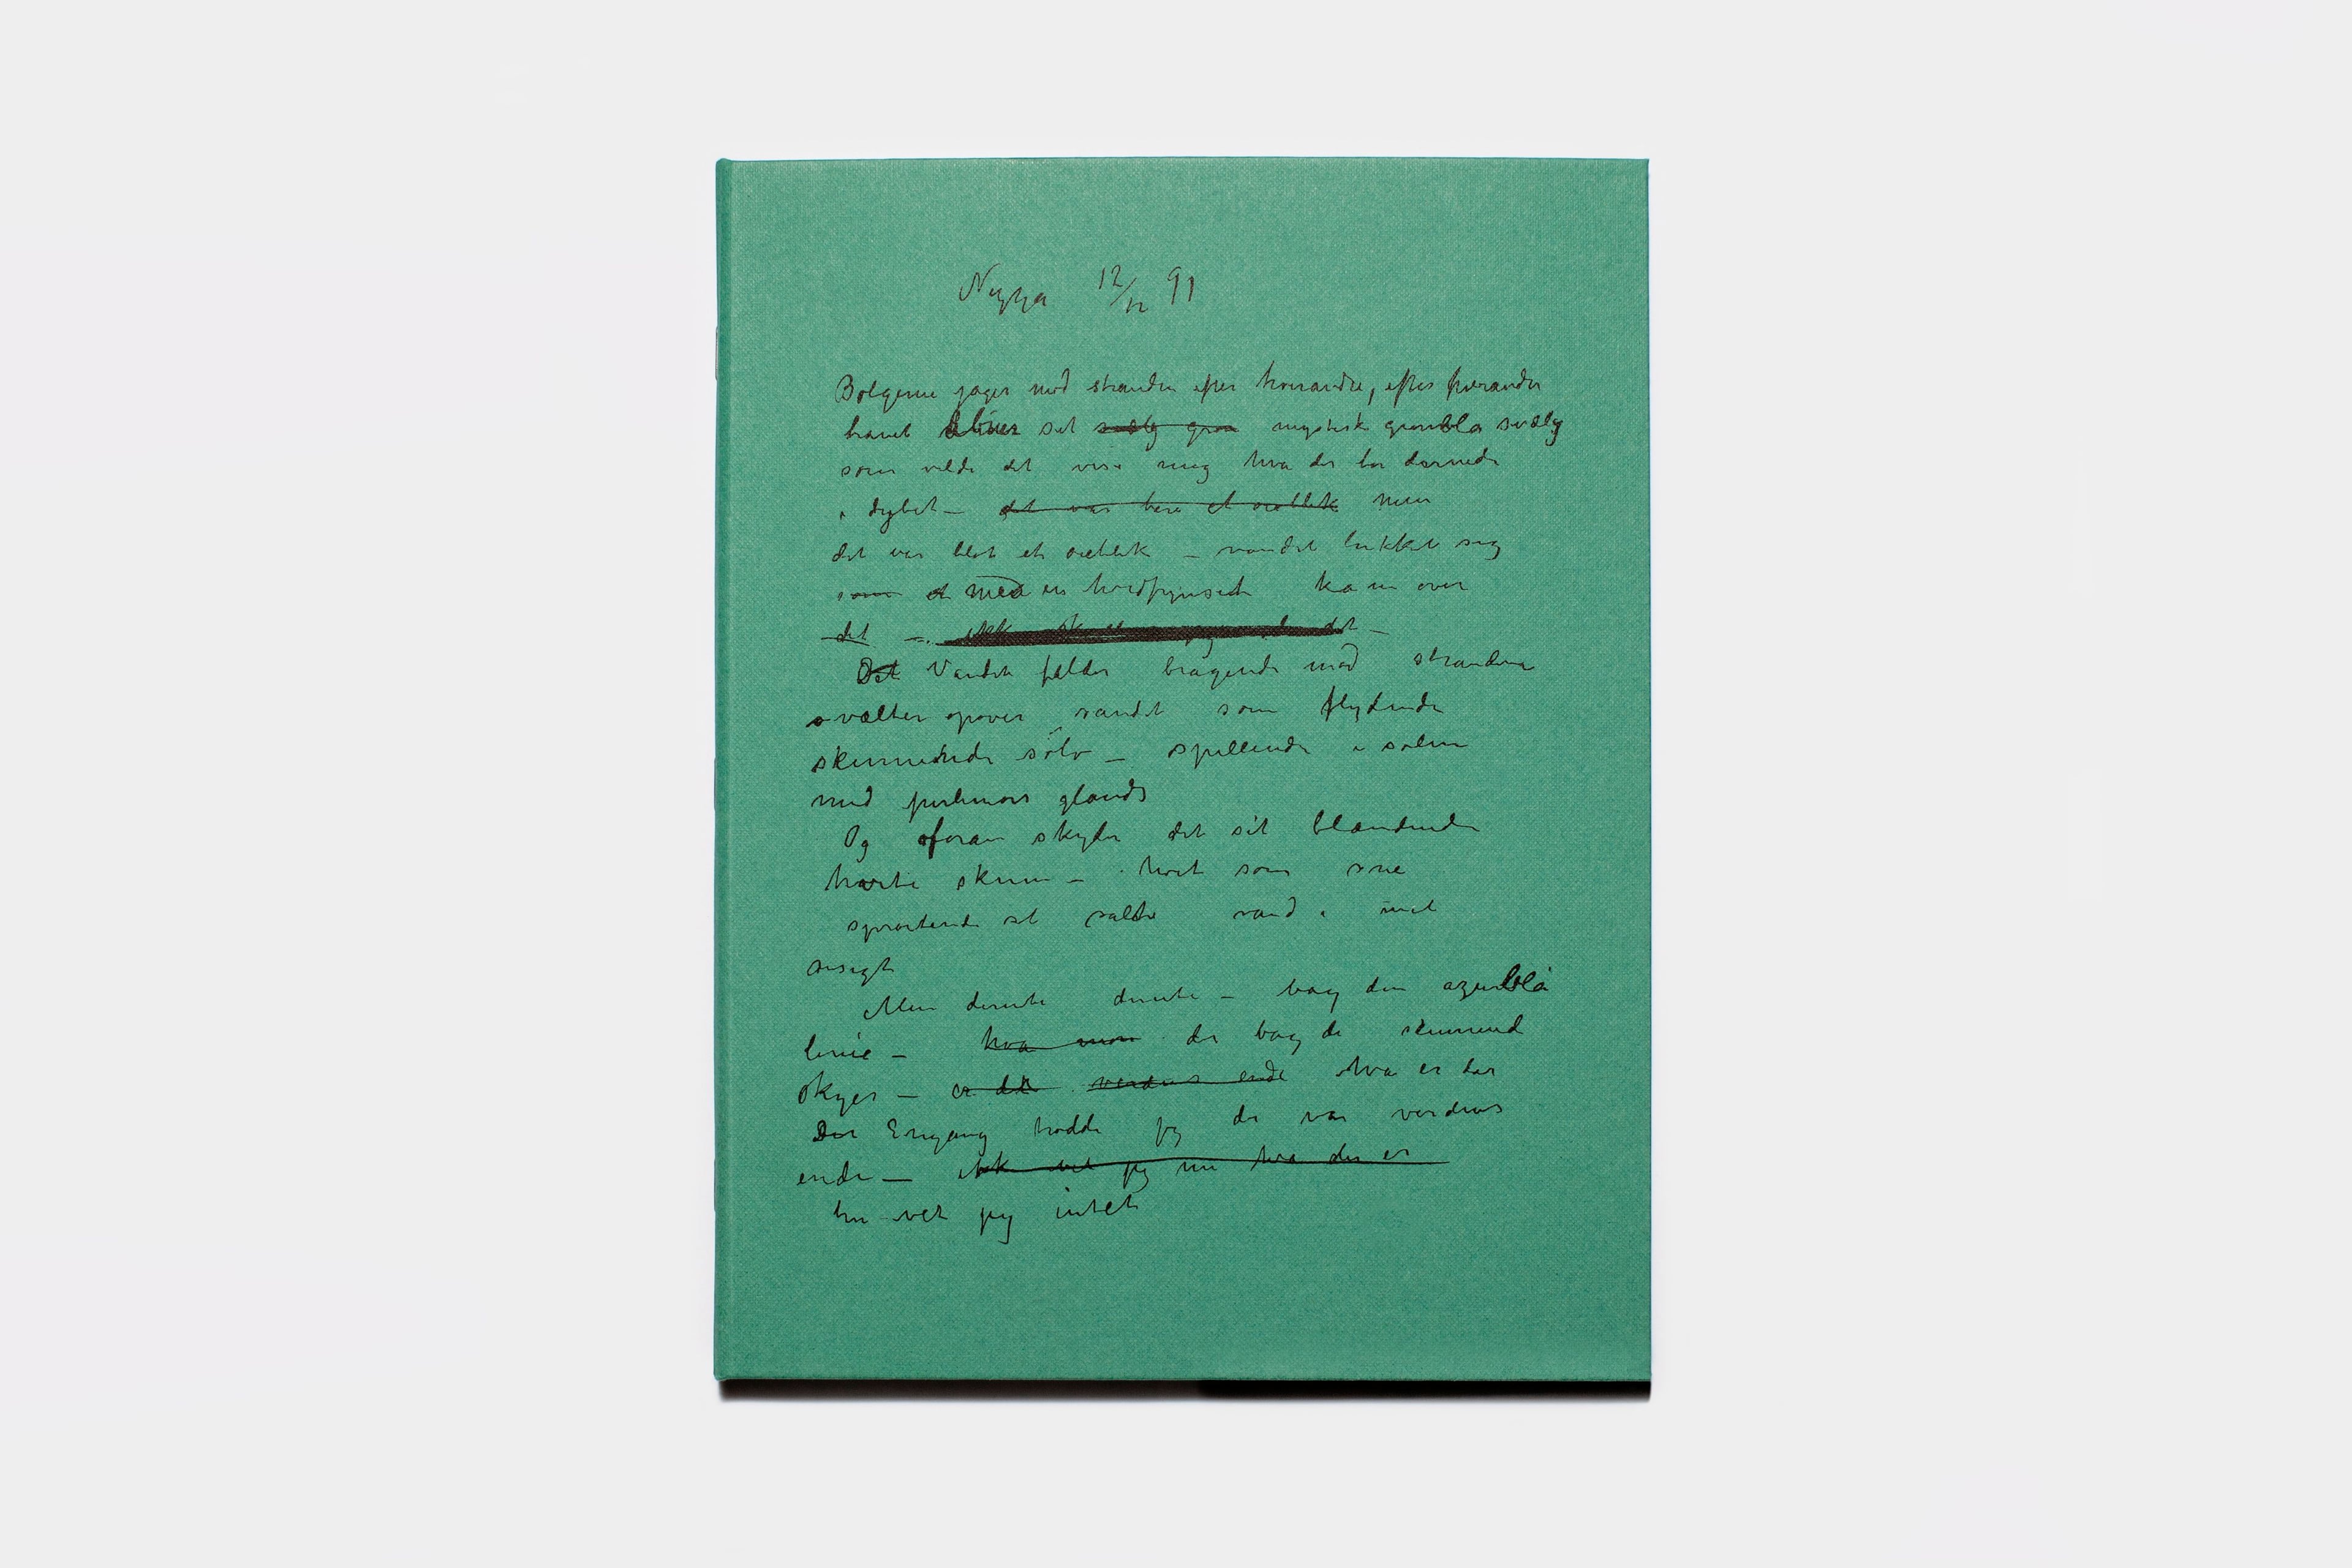 Nizza 12/12 91
Bølgerne jager mod stranden efter hverandre, efter hverandre
havet åbner sit svælg grøn mystisk grønblå svælg
som vilde det vise mig hva der bor dernede
i dybet — det var bare et øieblik men
det var blot et øieblik — vandet lukket sig
som et med en hvidfrynset kam over
det — det —
Det Vandet falder bragende mod stranden
vælter opover sandet som flydende
skinnende sølv — spillende i solen
med perlemors glands
Og foran skyder det sit blændende
hvite skum — hvit som sne
sprøitende sit salte vand i mit
ansigt
Men derute derute — bag den azurblå
linie — hva mon der bag de skinnend
skyer — er det verdens ende hva er der
Der Engang trodde jeg der var verdens
ende — ikke vet jeg nu hva der er
nu vet jeg intet